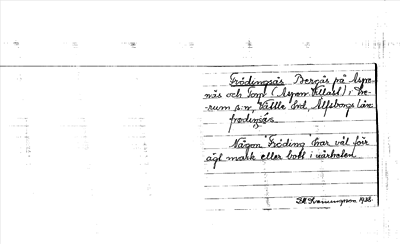 Frödingsås Bergås på Aspe-
näs och Torp (Aspen Västl) i Le-
rum s:n, Vättle hd, Älfsborgs län
frodiŋsås
Någon "Fröding" har väl för
ägt mark eller bott i närheten.
1938